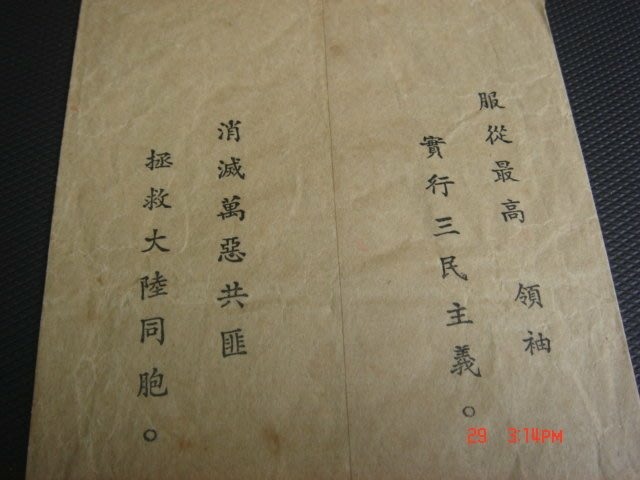 服從最高 領袖
實行三民主義。
消滅萬惡共匪
拯救大陸同胞。
29 3:14PM